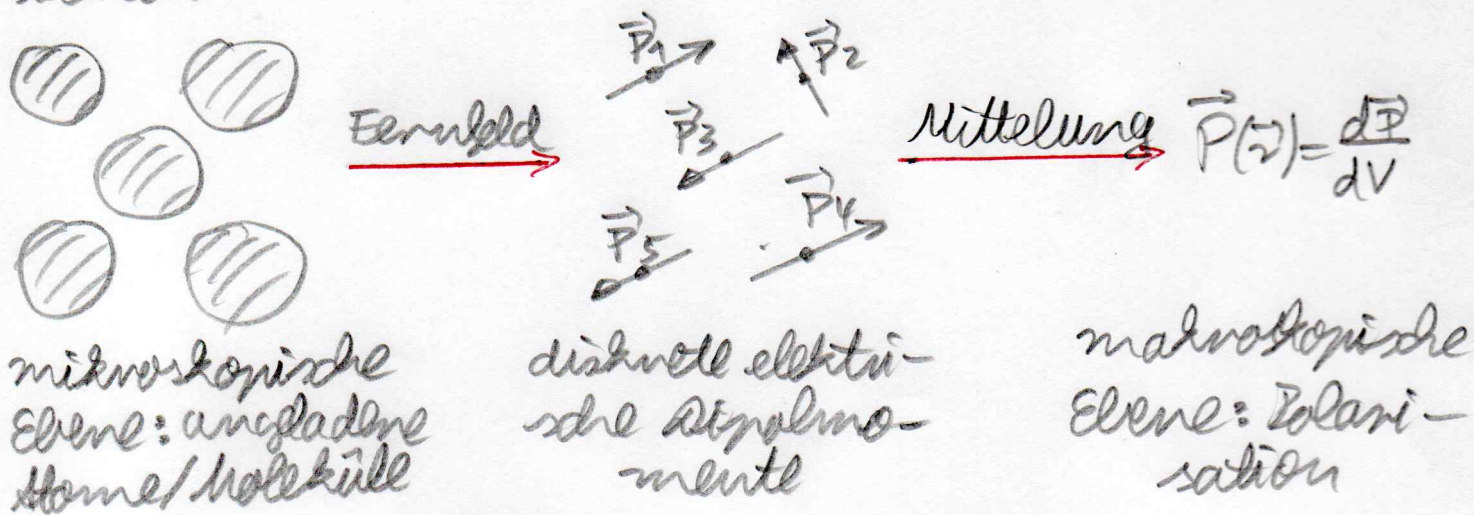 P⃗1 P⃗2
Fernfeld P⃗3 Mittelung P⃗(r⃗) = dP⃗/dV
P⃗5 P⃗4
mikroskopische
Ebene: ungeladene
Atome/Moleküle
diskrete elektri-
sche Dipolmo-
mente
makroskopische
Ebene: Polari-
sation